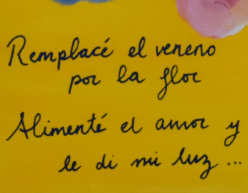 Remplacé el veneno
por la flor
Alimenté el amor y
le di mi luz...